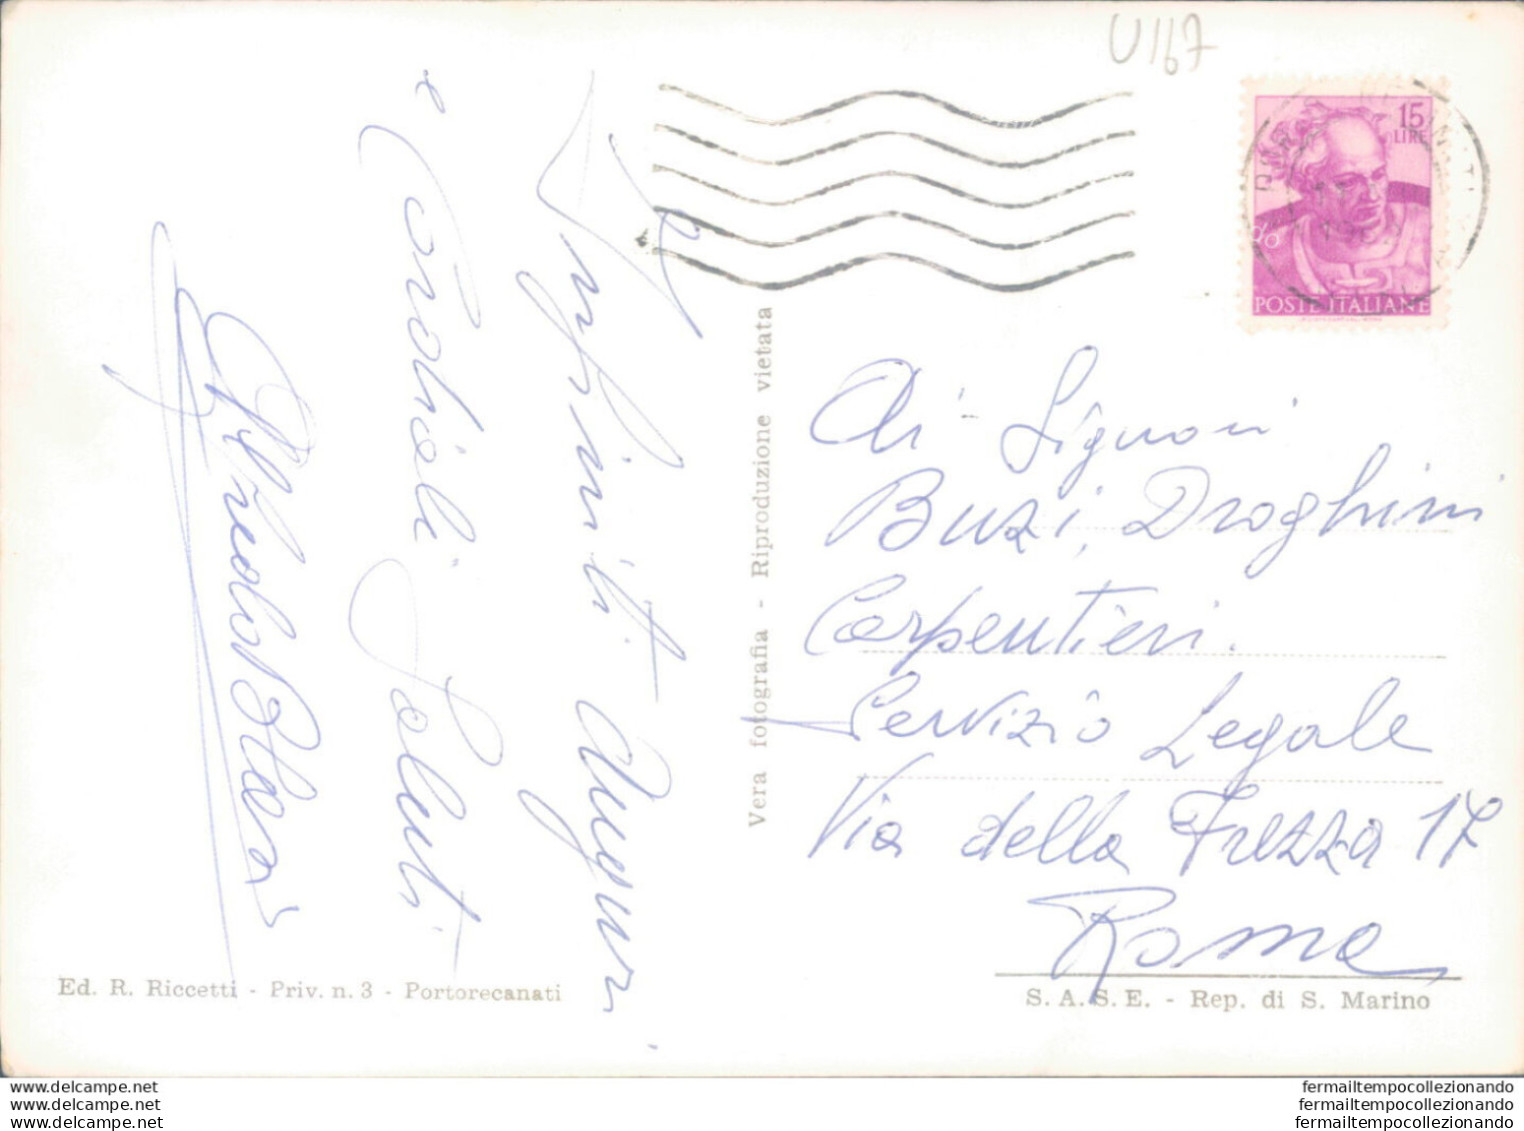 U167
15
LIRE
POSTE ITALIANE
Infiniti Auguri
e Cordiali Saluti
Vera fotografia - Riproduzione vietata
Ai Signori
Buzi, Droghini
Carpentieri.
Servizio Legale
Via della Frezza 17
Roma
Ed. R. Riccetti - Priv. n. 3 - Portorecanati
S.A.S.E. - Rep. di S. Marino
www.delcampe.net
www.delcampe.net
www.delcampe.net
fermailtempocollezionando
fermailtempocollezionando
fermailtempocollezionando